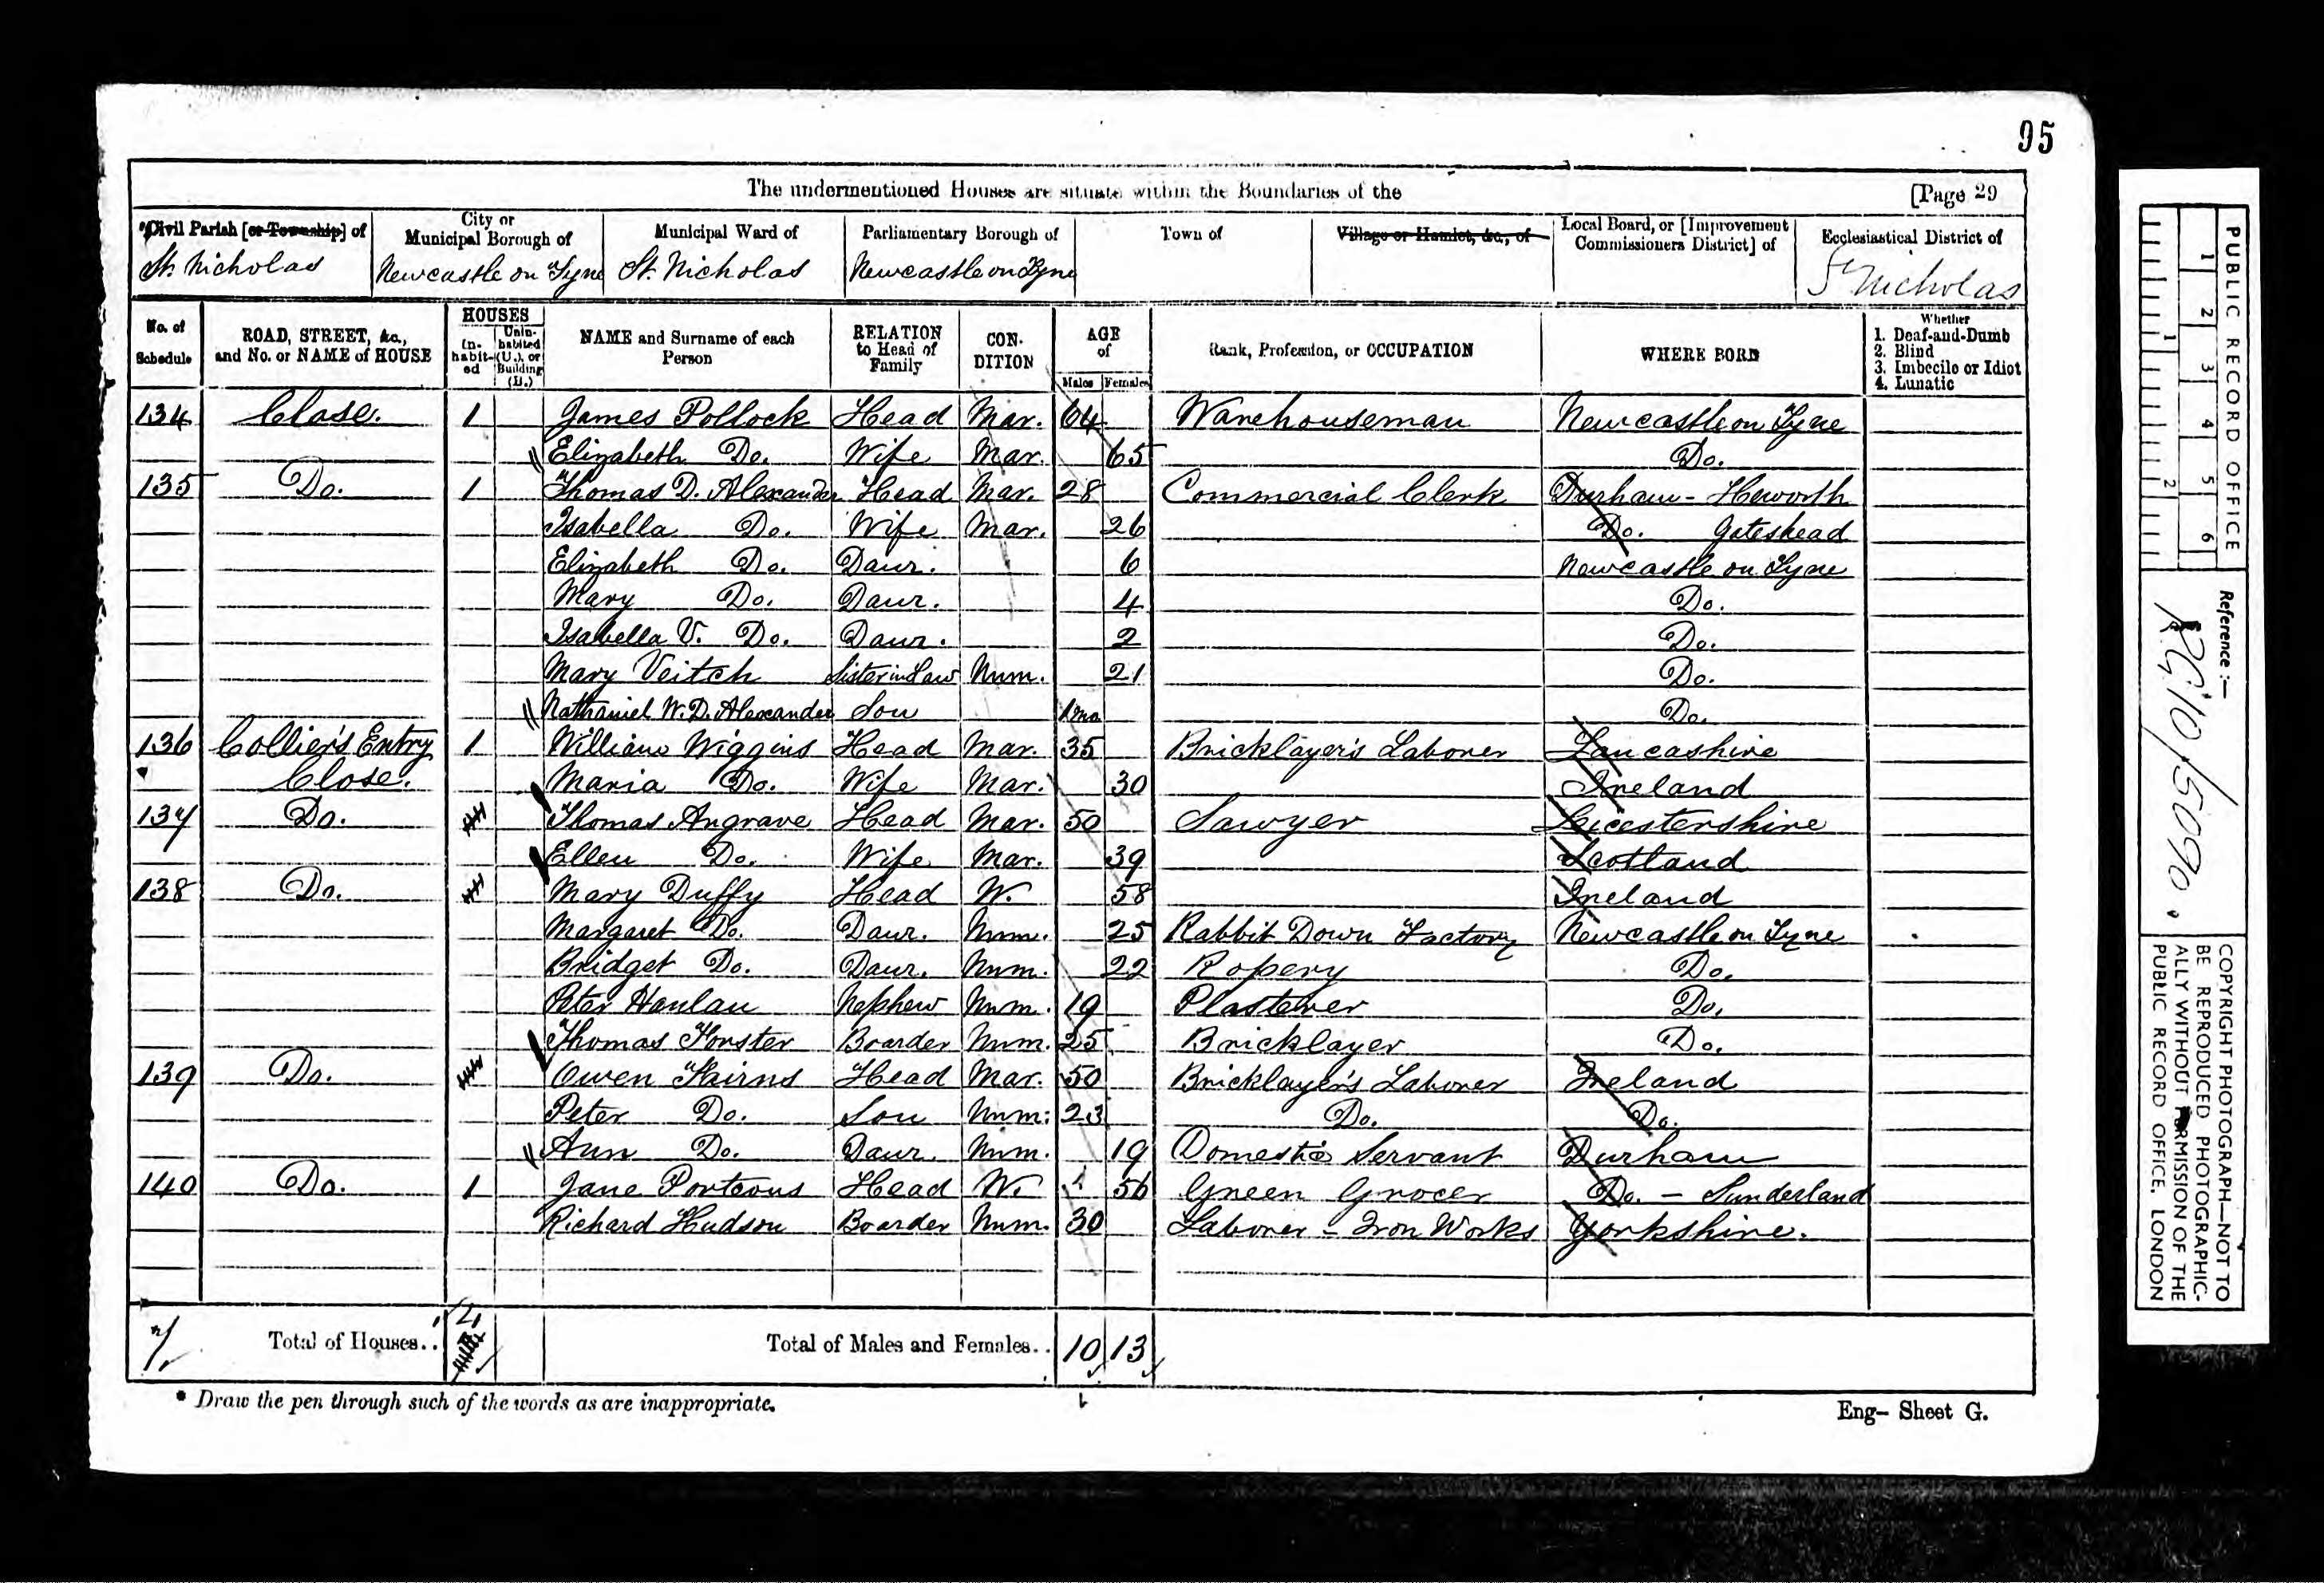 95
The undermentioned Houses are situate within the Boundaries of the [Page 29
*Civil Parish [or Township] of City or Municipal Borough of Municipal Ward of Parliamentary Borough of Town of Village or Hamlet, &c., of Local Board, or [Improvement Commissioners District] of Ecclesiastical District of
St. Nicholas Newcastle on Tyne St. Nicholas Newcastle on Tyne St Nicholas
No. of Schedule ROAD, STREET, &c., and No. or NAME of HOUSE HOUSES In-habit-ed Unin-habited (U.), or Building (B.) NAME and Surname of each Person RELATION to Head of Family CON-DITION AGE of Males Females Rank, Profession, or OCCUPATION WHERE BORN Whether 1. Deaf-and-Dumb 2. Blind 3. Imbecile or Idiot 4. Lunatic
134 Close. 1 James Pollock Head Mar. 64 Warehouseman Newcastle on Tyne
Elizabeth Do. Wife Mar. 65 Do.
135 Do. 1 Thomas D. Alexander Head Mar. 28 Commercial Clerk Durham - Heworth
Isabella Do. Wife Mar. 26 Do. Gateshead
Elizabeth Do. Daur. 6 Newcastle on Tyne
Mary Do. Daur. 4 Do.
Isabella V. Do. Daur. 2 Do.
Mary Veitch Sister in Law Unm. 21 Do.
Nathaniel W. D. Alexander Son 1 mo Do.
136 Collier's Entry 1 William Wiggins Head Mar. 35 Bricklayer's Laborer Lancashire
Close. Maria Do. Wife Mar. 30 Ireland
137 Do. Thomas Angrave Head Mar. 50 Sawyer Leicestershire
Ellen Do. Wife Mar. 39 Scotland
138 Do. Mary Duffy Head W. 58 Ireland
Margaret Do. Daur. Unm. 25 Rabbit Down Factory Newcastle on Tyne
Bridget Do. Daur. Unm. 22 Ropery Do.
Peter Hanlan Nephew Unm. 19 Plasterer Do.
Thomas Forster Boarder Unm. 25 Bricklayer Do.
139 Do. Owen Kairns Head Mar. 50 Bricklayer's Laborer Ireland
Peter Do. Son Unm. 23 Do. Do.
Ann Do. Daur. Unm. 19 Domestic Servant Durham
140 Do. 1 Jane Porteous Head W. 56 Green Grocer Do. - Sunderland
Richard Hudson Boarder Unm. 30 Laborer - Iron Works Yorkshire.
7 Total of Houses.. 4 Total of Males and Females.. 10 13
* Draw the pen through such of the words as are inappropriate.
Eng- Sheet G.
PUBLIC RECORD OFFICE
1 2 3 4 5 6
1 2
Reference :-
RG 10/5090
COPYRIGHT PHOTOGRAPH—NOT TO
BE REPRODUCED PHOTOGRAPHIC-
ALLY WITHOUT PERMISSION OF THE
PUBLIC RECORD OFFICE, LONDON